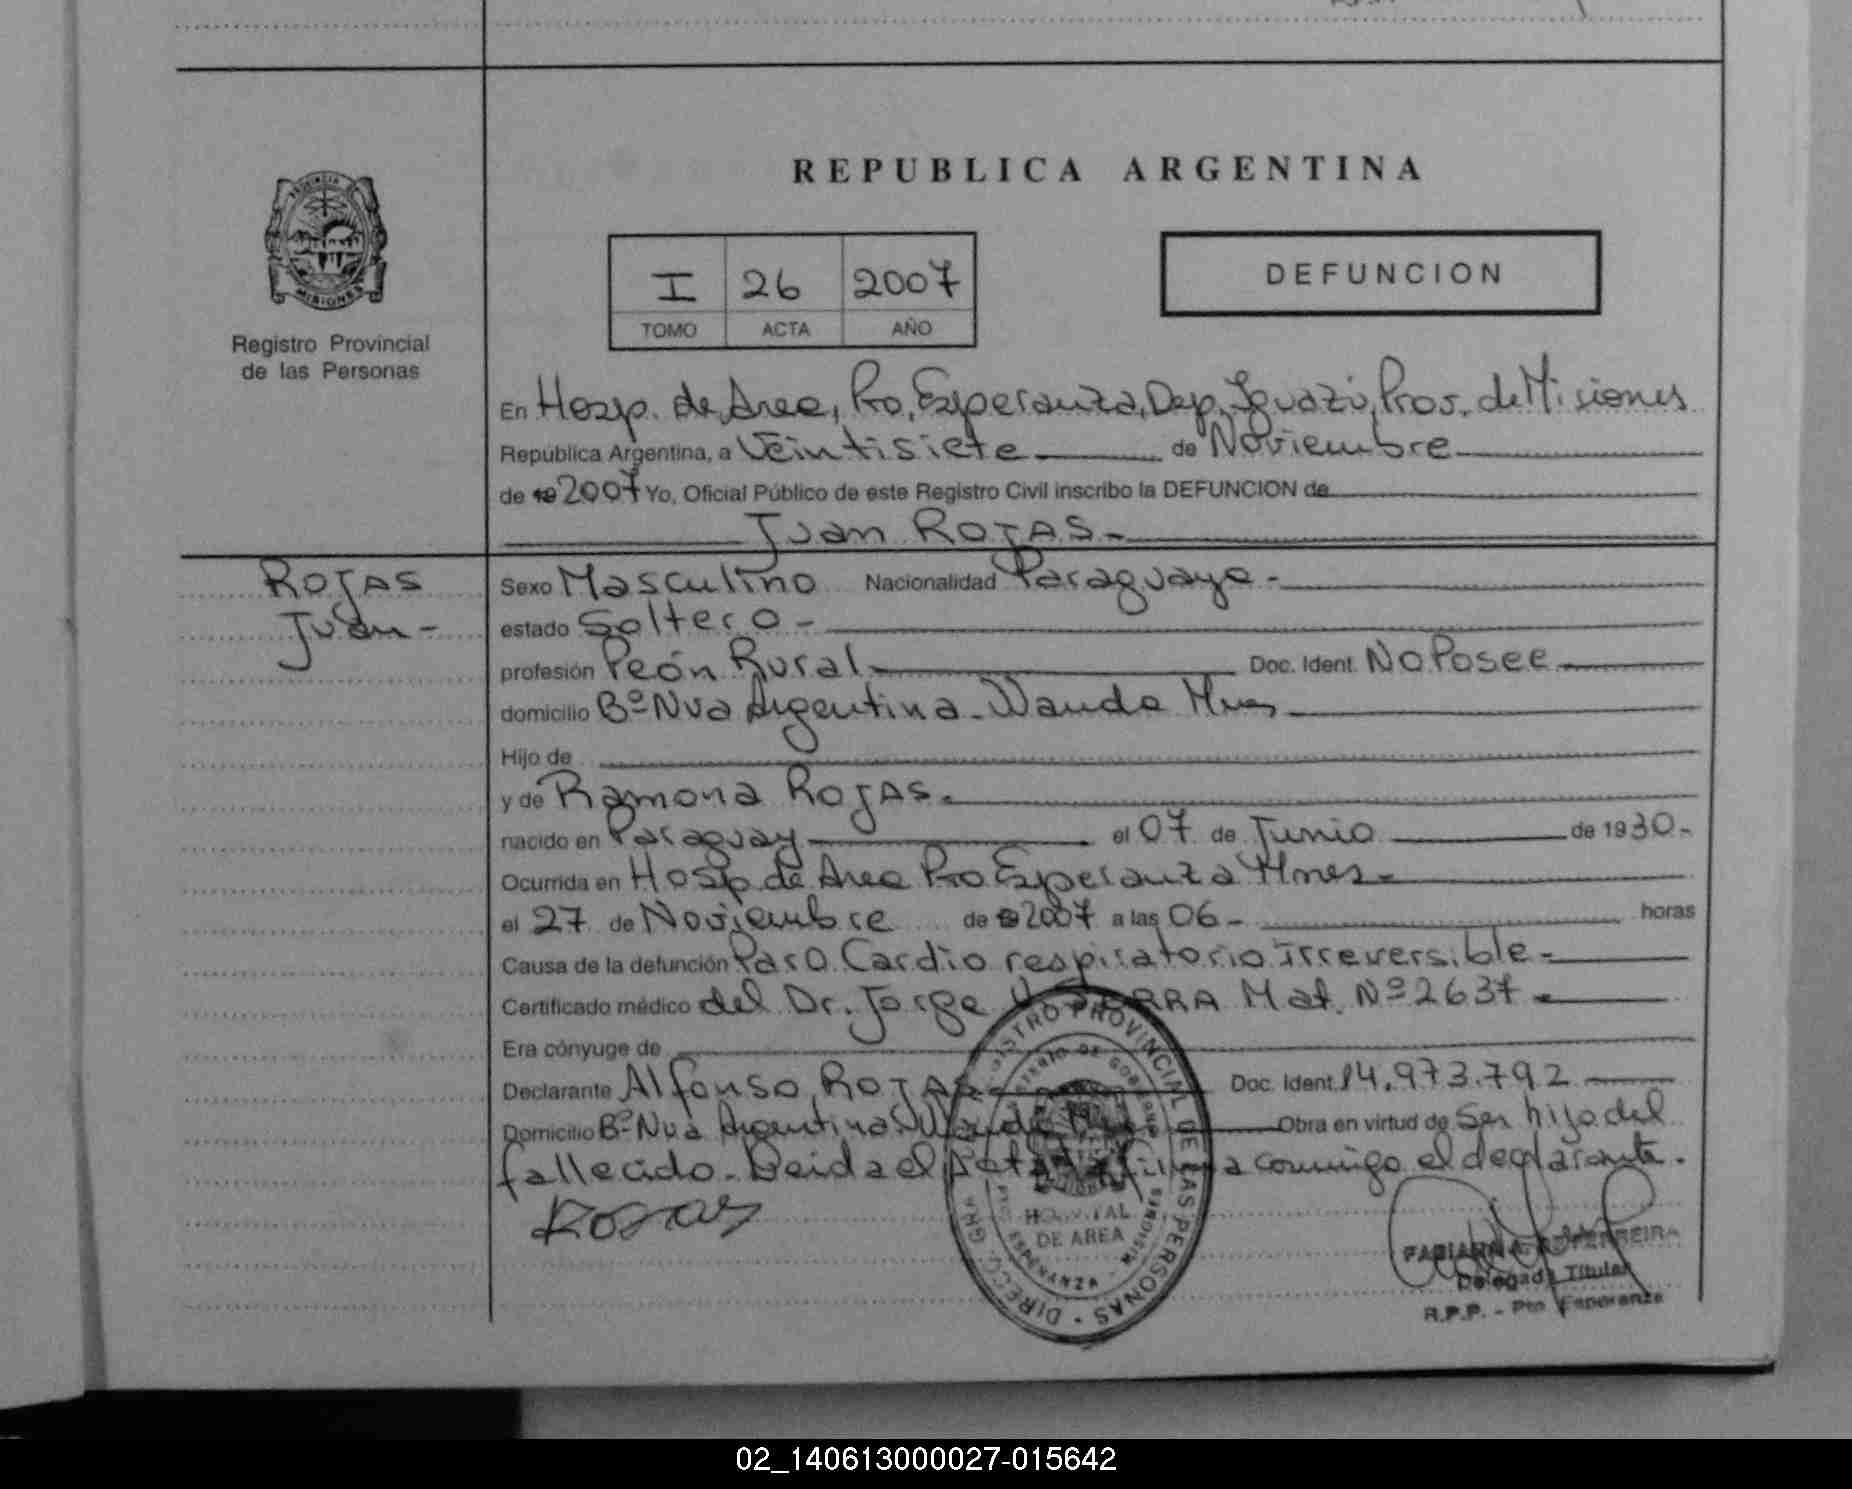 REPUBLICA ARGENTINA
PROVINCIA DE
MISIONES
Registro Provincial
de las Personas
I 26 2007
TOMO ACTA AÑO
DEFUNCION
En Hosp. de Area, Pto, Esperanza, Dep. Iguazú, Prov. de Misiones
República Argentina, a Veintisiete de Noviembre
de 19 2007 Yo, Oficial Público de este Registro Civil inscribo la DEFUNCION de
Juan ROJAS.-
ROJAS
Juan-
Sexo Masculino Nacionalidad Paraguaya-
estado Soltero-
profesión Peón Rural Doc. Ident. No Posee
domicilio Bº Nva Argentina-Wanda Mnes
Hijo de
y de Ramona ROJAS.
nacido en Paraguay el 07 de Junio de 1930-
Ocurrida en Hosp. de Area Pto Esperanza Mnes-
el 27 de Noviembre de 19 2007 a las 06- horas
Causa de la defunción Paro Cardio respiratorio irreversible-
Certificado médico del Dr. Jorge Mat. Nº 2637
Era cónyuge de
Declarante Alfonso ROJAS- Doc. Ident. 14.973.792
Domicilio Bº Nva Argentina Wanda Obra en virtud de Ser hijo del
fallecido- Leida el Acta firma conmigo el declarante.
Rojas
REGISTRO PROVINCIAL DE LAS PERSONAS
MINISTERIO DE GOBIERNO
HOSPITAL
DE AREA
ESPERANZA - MISIONES
DIRECC. GRAL
FERREIRA
Delegada Titular
R.P.P. - Pto Esperanza
02_140613000027-015642